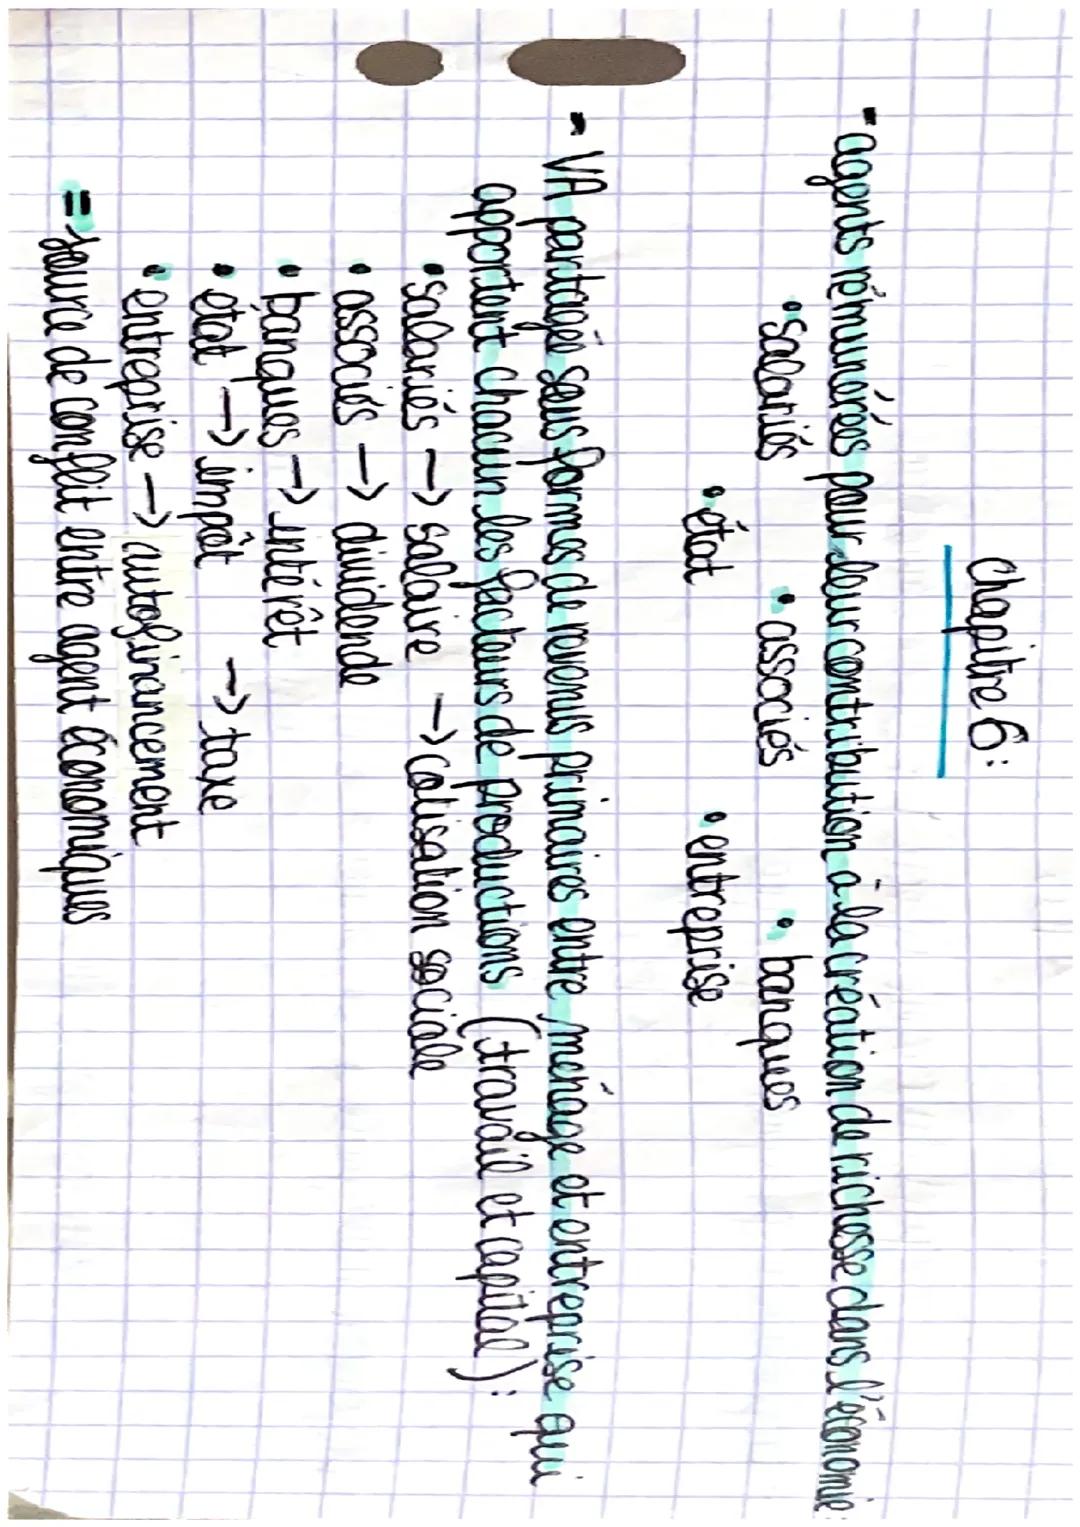 Chapitre 6:
- agents rémunérés pour leur contribution à la création de richesse dans l'économie:
• salariés • associés • banques
• état • entreprise
- VA partagée sous formes de revenus primaires entre ménage et entreprise qui
apportent chacun les facteurs de productions (travail et capital):
• salariés → salaire → cotisation sociale
• associés → dividende
• banques → intérêt
• état → impôt → taxe
• entreprise → autofinancement
= source de conflit entre agent économiques